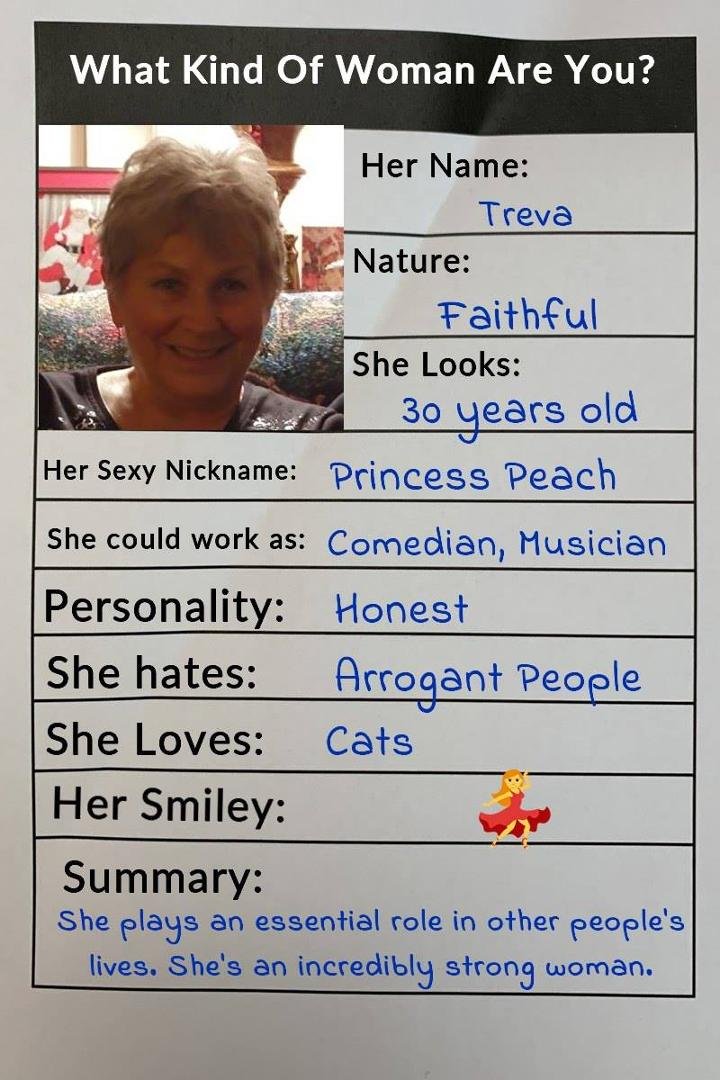 What Kind Of Woman Are You?
Her Name:
Treva
Nature:
Faithful
She Looks:
30 years old
Her Sexy Nickname: Princess Peach
She could work as: Comedian, Musician
Personality: Honest
She hates: Arrogant People
She Loves: Cats
Her Smiley:
Summary:
She plays an essential role in other people's
lives. She's an incredibly strong woman.